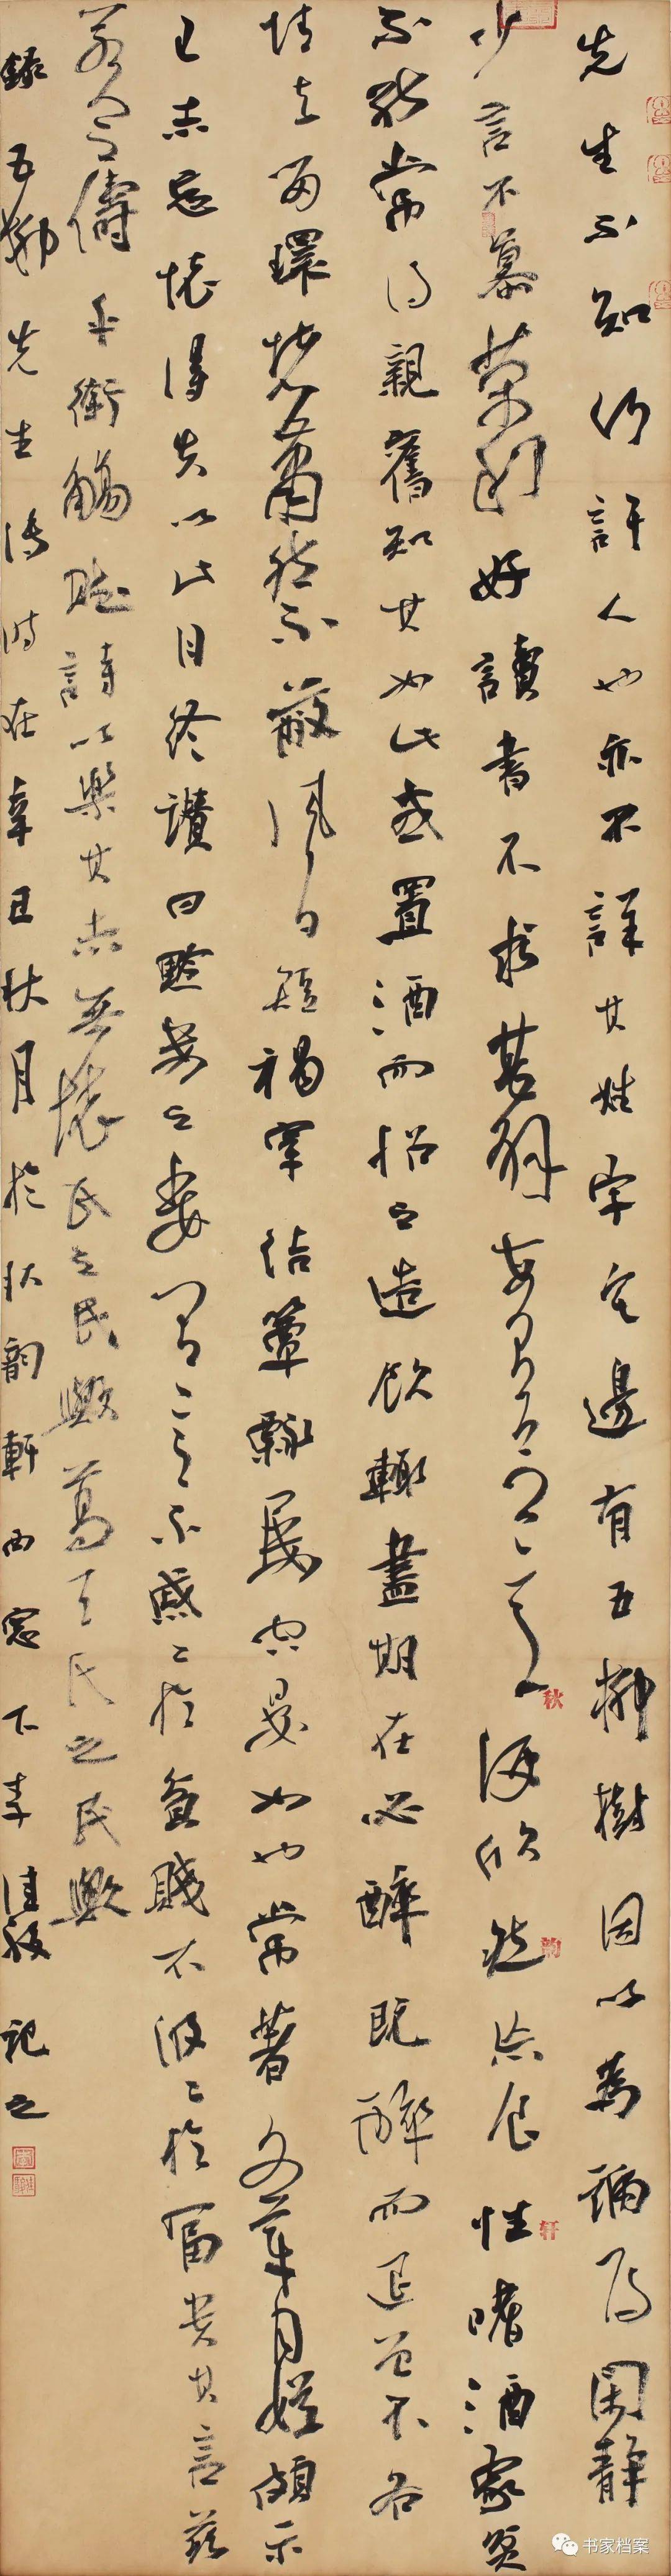 先生不知何許人也亦不詳其姓字宅邊有五柳樹因以為號焉閑靜
少言不慕榮利好讀書不求甚解每有會意便欣然忘食性嗜酒家貧
不能常得親舊知其如此或置酒而招之造飲輒盡期在必醉既醉而退曾不吝
情去留環堵蕭然不蔽風日短褐穿結簞瓢屢空晏如也常著文章自娛頗示
己志忘懷得失以此自終讚曰黔婁之妻有言不戚〻於貧賤不汲〻於富貴其言茲
若人之儔乎銜觴賦詩以樂其志無懷氏之民歟葛天氏之民歟
錄五柳先生傳時在辛丑秋月於秋韵軒西窓下李佳記之
秋
韵
轩
书家档案